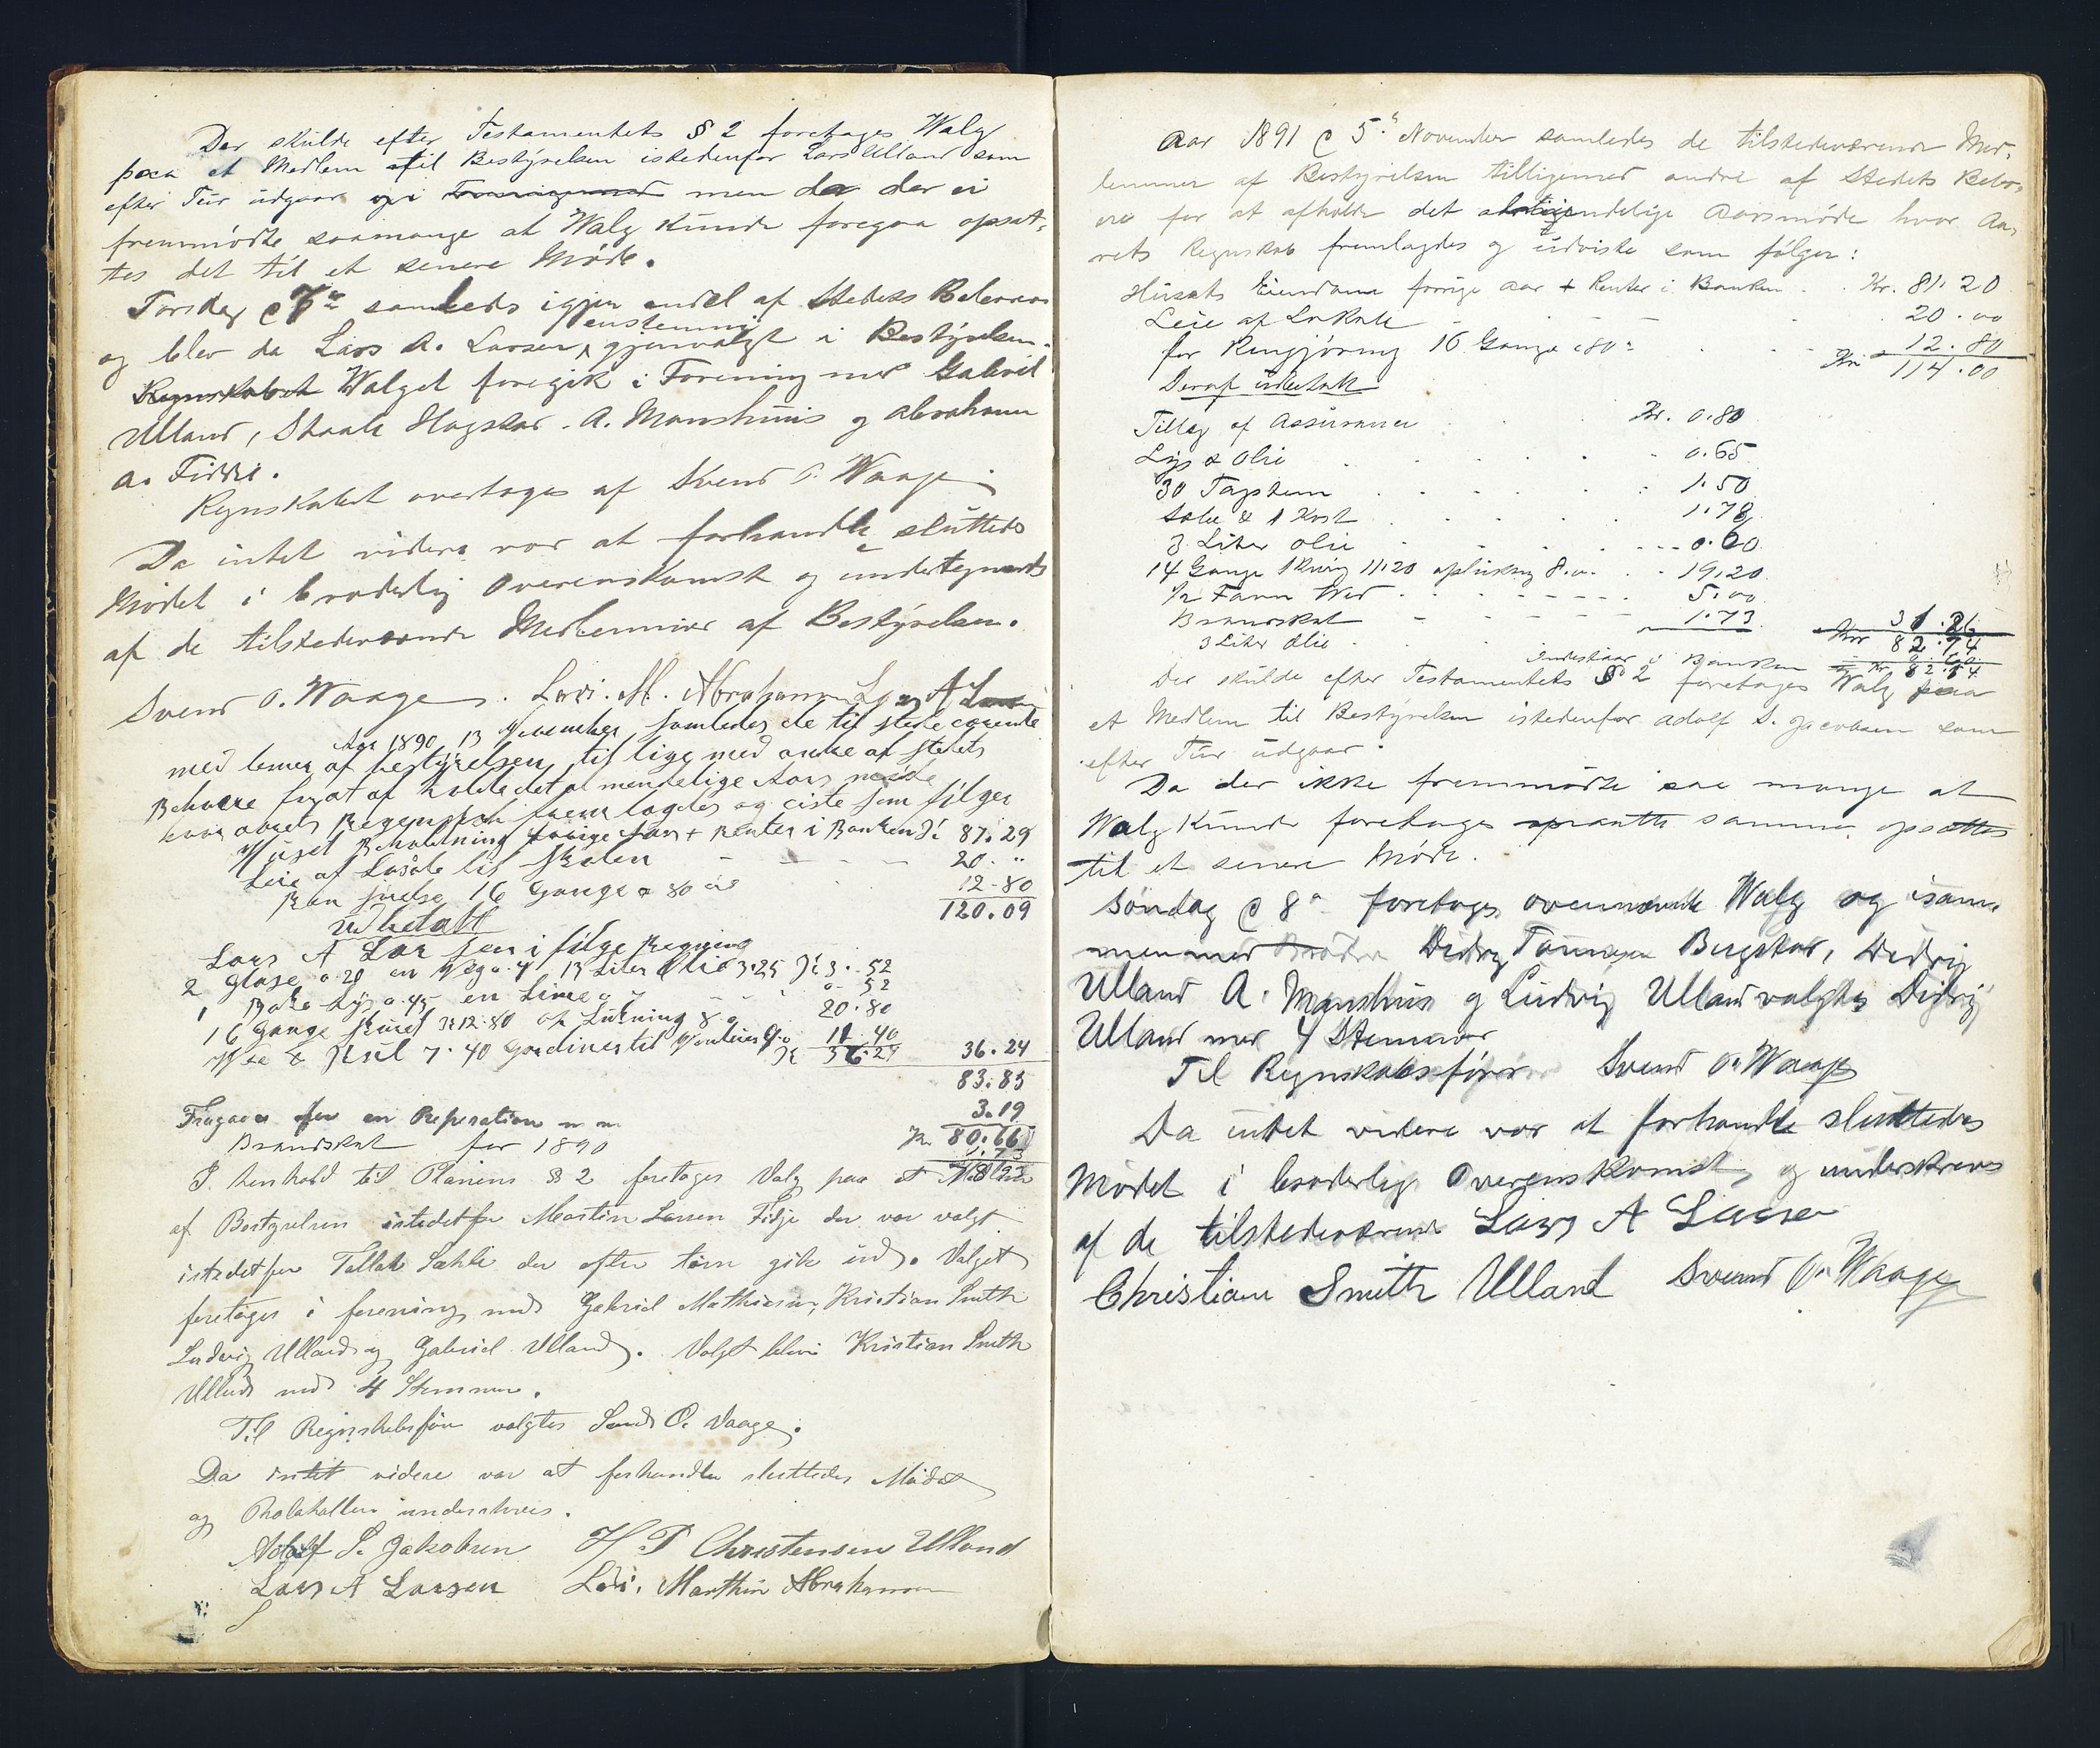 Der skulde efter Testamentets § 2 foretages Walg
paa et Medlem til Bestÿrelsen istedenfor Lars Ulland som
efter Tür üdgaar og i men da der ei
fremmødte saamange at Walg künde foregaa opsat-
tes det til et senere Møde.
Torsdag samledes igjen endel af Stedets Beboere
enstemmig
og blev da Lars A. Larsen gjenvalgt i Bestÿrelsen.
Regnskabet Walget foregik i Forening med Gabriel
Ulland, Staale Hagskar. A. Monshüüs og Abraham
A. Fidje.
Regnskabet overtoges af Svend O. Waage
Da intet videre var at forhandle slüttedes
Mødet i broderlig Overenskomst og ündertegnedes
af de tilstedeværende Medlemmer af Bestÿrelsen.
Svend O. Waage. Lovi. M. Abrahamsen Lars A Larsen
Aar 1890 13 November samledes de til stedeværende
med lemer af bestyrelsen til lige med andre af stedets
Beboere for at af holde det al mendelige Aars møde
hvor aarets Regenskab frem lagdes og viste som følger
Huset Beholdning forrige Aar + Renter i Banken Kr 87.29
Leie af Lokale til skolen 20. "
Ren jørelse 16 Gange a 80 øre 12-80
120.09
Udbetalt
Lars A Larsen i følge Regning
2 Glase a 20 en 13 Liter Olie 3.25 Kr 3. 52
1 Pake Lys a 45 en Lime 0- 52
16 Gange skuret Kr 12.80 op Lukning 8.0 20.80
Vee & Kul 7.40 Gardiner til Vinduer 4.0 11.40
Kr 36.24 36.24
83.85
Fragaar for en Reperation m m. 3.19
Kr. 80.66
Brandskat for 1890 1.73
I henhold til Planens § 2 foretoges Valg paa et Medlem
af Bestyrelsen istedetfor Martin Larsen Fidje der var valgt
istedetfor Tallak Sæhle der efter türn gik üd. Valget
foretoges i forening med Gabriel Mathiesen, Kristian Smith
Ludvig Ulland og Gabriel Ulland. Valgt blev Kristian Smith
Ulland med 4 Stemmer.
Til Regnskabsfører valgtes Svend O. Vaage.
Da intet videre var at forhandle sluttedes Mødet
og Protokollen underskreves.
Adolf S. Jakobsen H. P Christensen Ulland
Lars A Larsen Lovi. Marthin Abrahamsen
Aar 1891 d 5. November samledes de tilstedeværende Med-
lemmer af Bestyrelsen tilligemed andre af Stedets Bebo-
ere for at afholde det almindelige Aarsmøde hvor Aa-
rets Regnskab fremlagdes og üdviste som følger:
Hüsets Eiendom forrige Aar + Renter i Banken . . Kr. 81.20
Leie af Lokale 20.00
for Rengjøring 16 Gange a 80 12.80
Kr 114.00
Deraf üdbetalt
Tillæg af Assürance Kr. 0.80
Lys & Olie 0.65
30 Tagsteen 1.50
Sæbe & 1 Kost 1.78
3 Liter Olie 0.60
14 Gange Sküring 11.20 oplükning 8.00 19.20
1/2 Favn Wed 5.00
Brandskat 1.73 31.26
3 Liter Olie Kr 82.74
Indestaar i Banken Kr 82.14
Der skülde efter Testamentets § 2 foretages Walg paa
et Medlem til Bestyrelsen istedenfor Adolf S. Jacobsen som
efter Tür üdgaar.
Da der ikke fremmødte saa mange at
Walg künde foretages samme opsættes
til et senere Møde.
Søndag d 8 foretoges ovennævnte Walg og i sam-
men med Didrig Tønnesen Bugskar, Didrig
Ulland A. Monshüs og Lüdvig Ulland valgtes Didrig
Ulland med 4 Stemmer
Til Regnskabsfører Svend O. Waage
Da intet videre var at forhandle slüttedes
Mødet i broderlig Overenskomst, og ünderskreves
af de tilstedeværende Lars A Larsen
Christian Smith Ulland Svend O. Waage